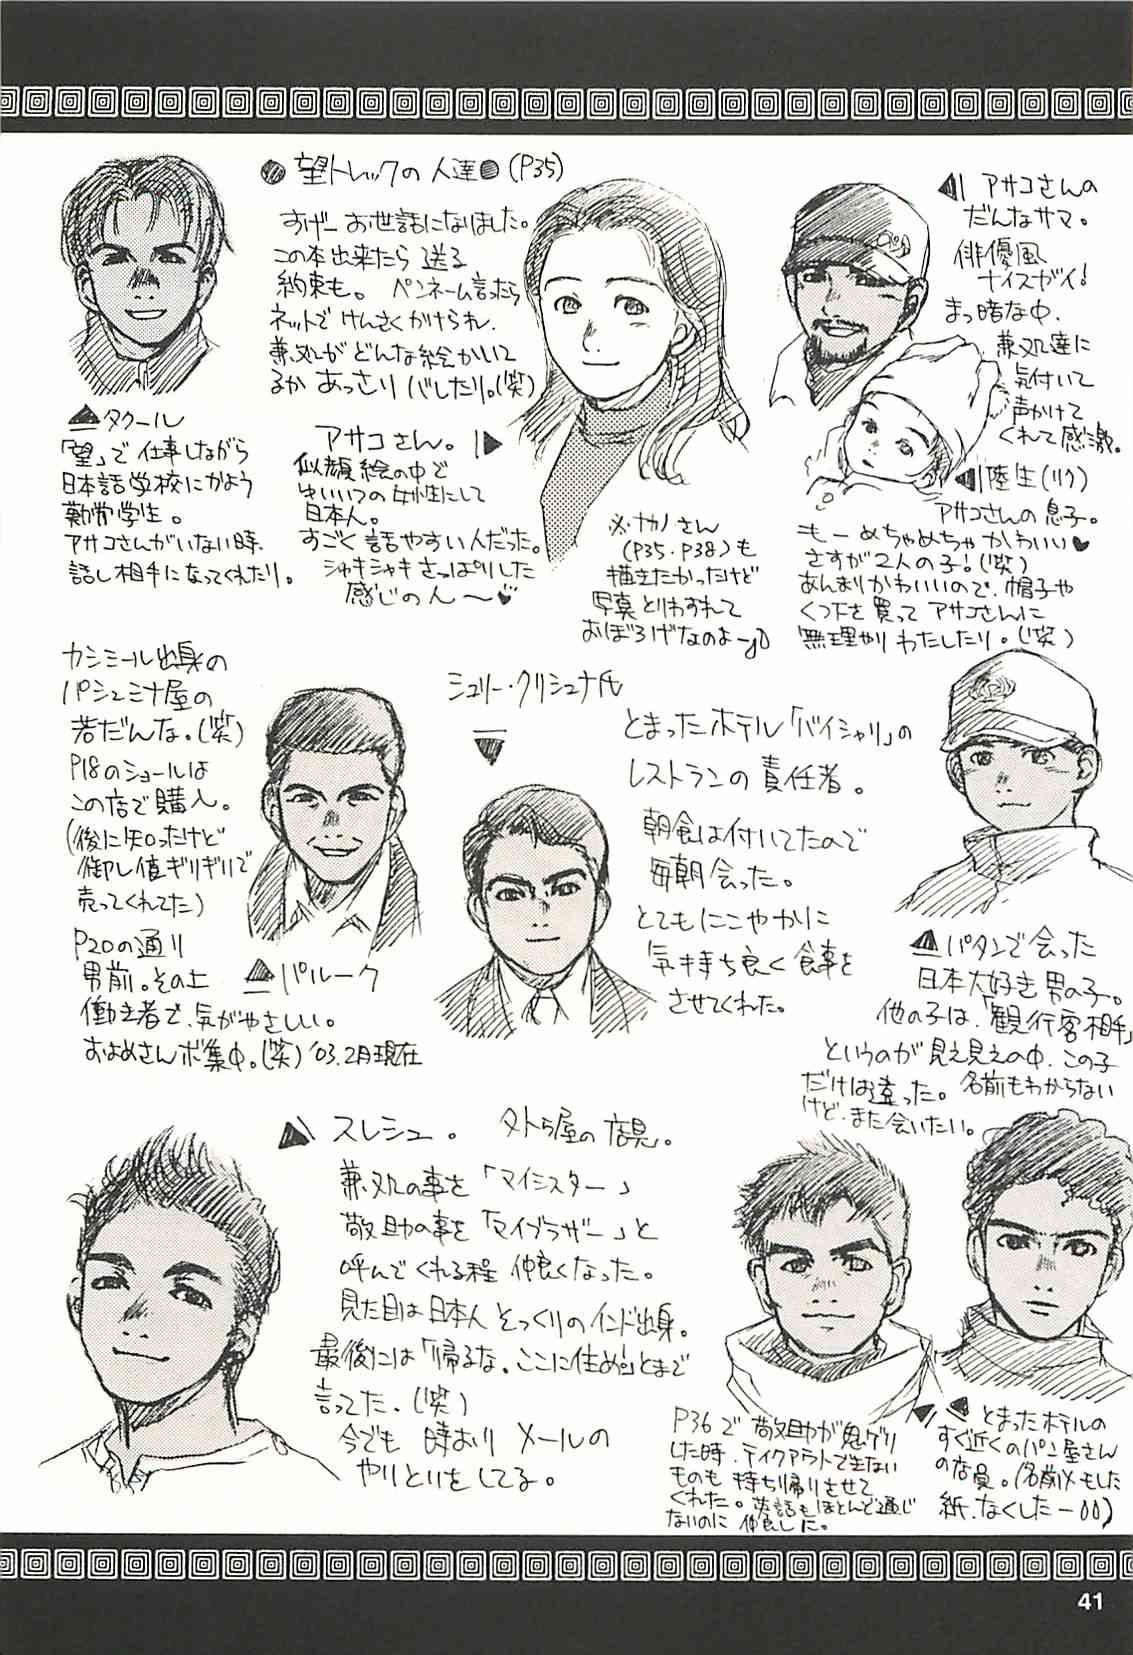 ●望トレックの人達●(P35)
すげーお世話になりました。
この本出来たら送る
約束も。ペンネーム言ったら
ネットでけんさくかけられ、
兼処がどんな絵かいて
るかあっさりバレたり。(笑)
▲タクール
「望」で仕事しながら
日本語学校にかよう
勤労学生。
アサコさんがいない時、
話し相手になってくれたり。
アサコさん。▶
似顔絵の中で
ゆいいつの女性にして
日本人。
すごく話やすい人だった。
シャキシャキさっぱりした
感じの人〜♥
◀アサコさんの
だんなサマ。
俳優風
ナイスガイ!
まっ暗な中、
兼処達に
気付いて
声かけて
くれて感激。
◀陸生(リク)
アサコさんの息子。
もーめちゃめちゃかわいい♥
さすが2人の子!(笑)
あんまりかわいいので、帽子や
くつ下を買ってアサコさんに
無理やりわたしたり。(笑)
※ナカノさん
(P35・P38)も
描きたかったけど
写真とりわすれて
おぼろげなのよー
カシミール出身の
パシュミナ屋の
若だんな。(笑)
P18のショールは
この店で購入。
(後に知ったけど
卸し値ギリギリで
売ってくれてた)
P20の通り
男前。その上
働き者で、気がやさしい。
およめさんボ集中。(笑)'03.2月現在
▲パルーク
シュリー・クリシュナ氏
▼
とまったホテル「バイシャリ」の
レストランの責任者。
朝食は付いてたので
毎朝会った。
とてもにこやかに
気持ち良く食事を
させてくれた。
▲パタンで会った
日本大好き男の子。
他の子は、「観行客相手」
というのが見え見えの中、この子
だけは違った。名前もわからない
けど、また会いたい。
▲スレシュ。タトゥ屋の店員。
兼処の事を「マイシスター」
敬助の事を「マイブラザー」と
呼んでくれる程仲良くなった。
見た目は日本人そっくりのインド出身。
最後には「帰るな。ここに住め」とまで
言ってた。(笑)
今でも時おりメールの
やりとりをしてる。
P36で敬助が鬼ゲリ
した時、テイクアウトできない
ものも持ち帰りさせて
くれた。英語もほとんど通じ
ないのに仲良しに。
▲とまったホテルの
すぐ近くのパン屋さん
の店員。(名前メモした
紙、なくしたー)
41